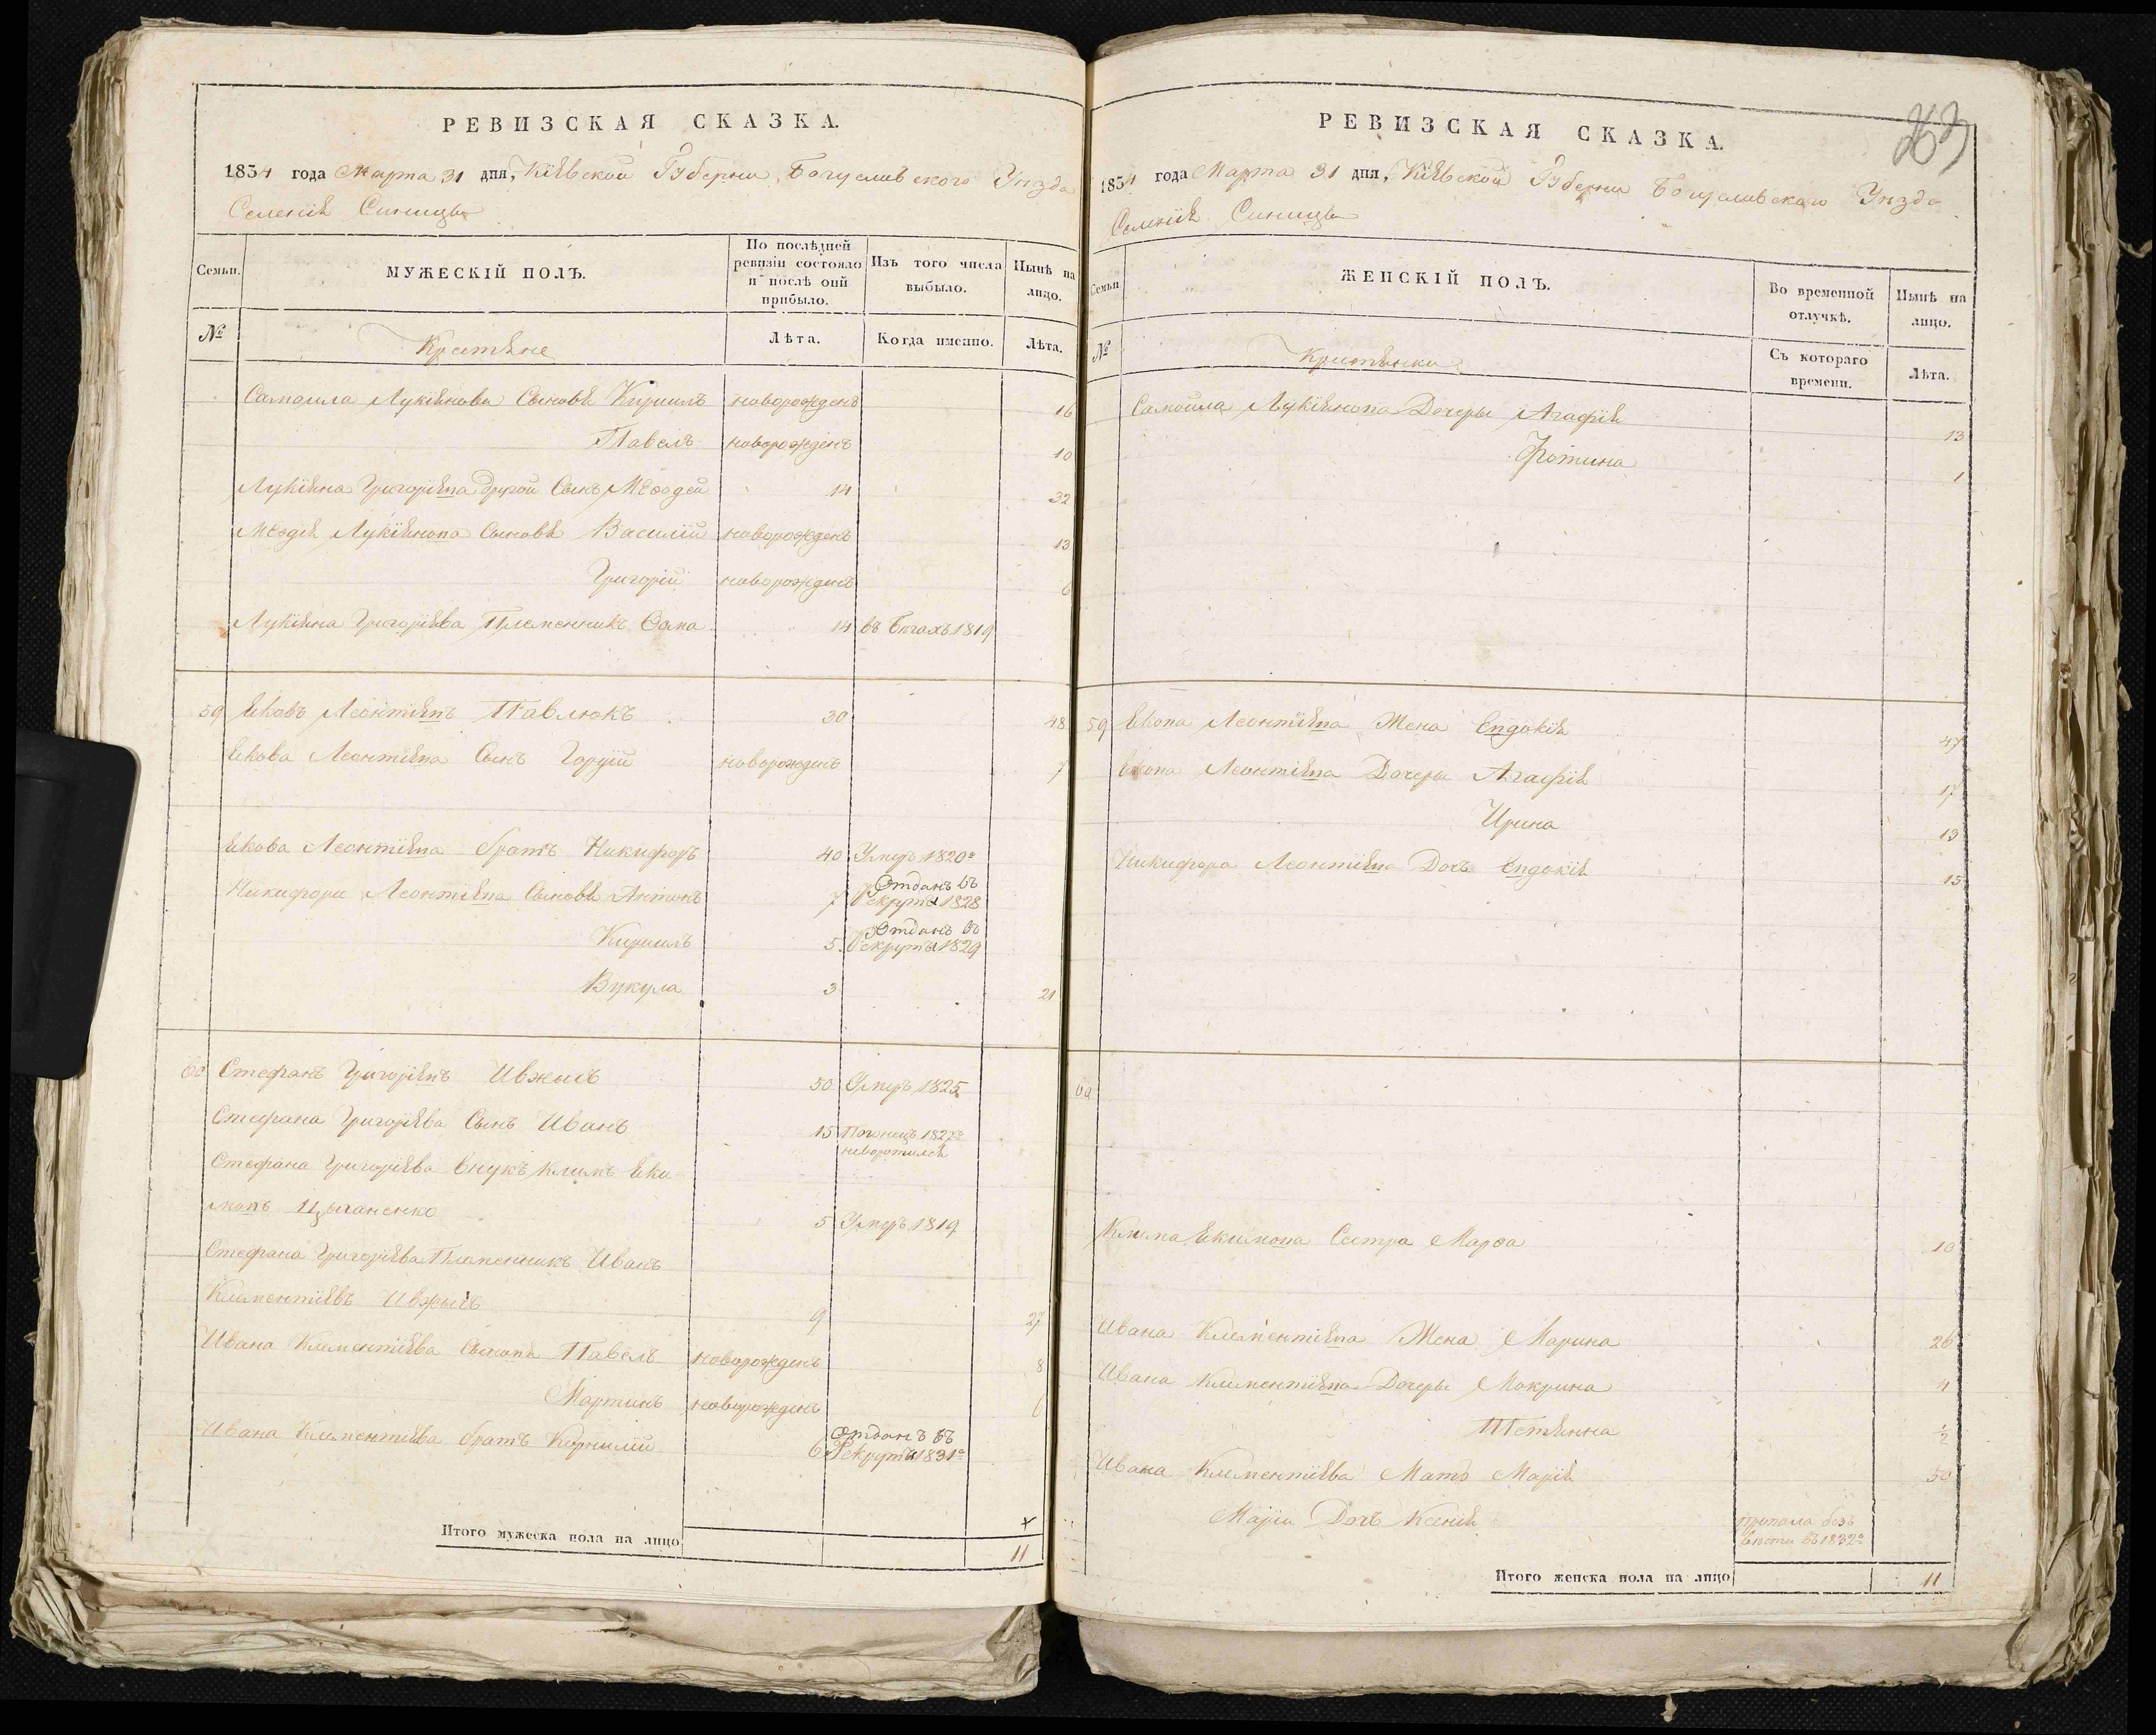 РЕВИЗСКАЯ СКАЗКА.
1834 года Марта 31 дня, Кіевской Губерніи Богуславского Уѣзда
Селенія Синицы
Семьи. МУЖЕСКІЙ ПОЛЪ. По послѣдней ревизіи состояло и послѣ оной прибыло. Изъ того числа выбыло. Нынѣ на лицо.
№ Крестяне Лѣта. Когда имянно. Лѣта.
Самоила Лукіянова Сыновя Кирилъ новорожденъ 16
Павелъ новорожденъ 10
Лукіяна Григоріева другой Сынъ Меѳодей 14 32
Меѳодія Лукіянова Сыновя Василій новорожденъ 13
Григорій новорожденъ 6
Лукіяна Григоріева Племенникъ Сава 14 въ бѣгахъ 1819
59 Яковъ Леонтіевъ Павлюкъ 30 48
Якова Леонтіева Сынъ Гордій новорожденъ 7
Якова Леонтіева братъ Никифоръ 40 Умеръ 1820го
Никифора Леонтіева Сыновя Антонъ 7 Отданъ въ Рекруты 1828
Кирилъ 5 Отданъ въ Рекруты 1829
Вукула 3 21
60 Стефанъ Григоріевъ Ивжыкъ 50 Умеръ 1825
Стефана Григоріева Сынъ Иванъ 15 1827го неворотился
Стефана Григоріева Внукъ Климъ Яки
мовъ Цыганенко 5 Умеръ 1819
Стефана Григоріева Племенникъ Иванъ
Клементіевъ Ивжыкъ 9 27
Ивана Клементіева Сыновя Павелъ новорожденъ 8
Мартинъ новорожденъ 6
Ивана Клементіева братъ Корнилій 6 Отданъ въ Рекруты 1831го
Итого мужеска пола на лицо 11
263
РЕВИЗСКАЯ СКАЗКА.
1834 года Марта 31 дня, Кіевской Губерніи Богуславского Уѣзда
Селенія Синицы
Семьи. ЖЕНСКІЙ ПОЛЪ. Во временной отлучкѣ. Нынѣ на лицо.
№ Крестянки Съ котораго времени. Лѣта.
Самоила Лукіянова Дочеры Агафія 13
Фотина 1
59 Якова Леонтіева Жена Евдокія 47
Якова Леонтіева Дочери Агафія 17
Ирина 13
Никифора Леонтіева Дочъ Евдокія 15
60
Клима Якимова Сестра Марѳа 10
Ивана Клементіева Жена Марина 26
Ивана Клементіева Дочеры Мокрина 4
Тетянна ½
Ивана Клементіева Мать Марія 50
Маріи Дочъ Ксенія пропала безъ вѣсти въ 1832го
Итого женска пола на лицо 11